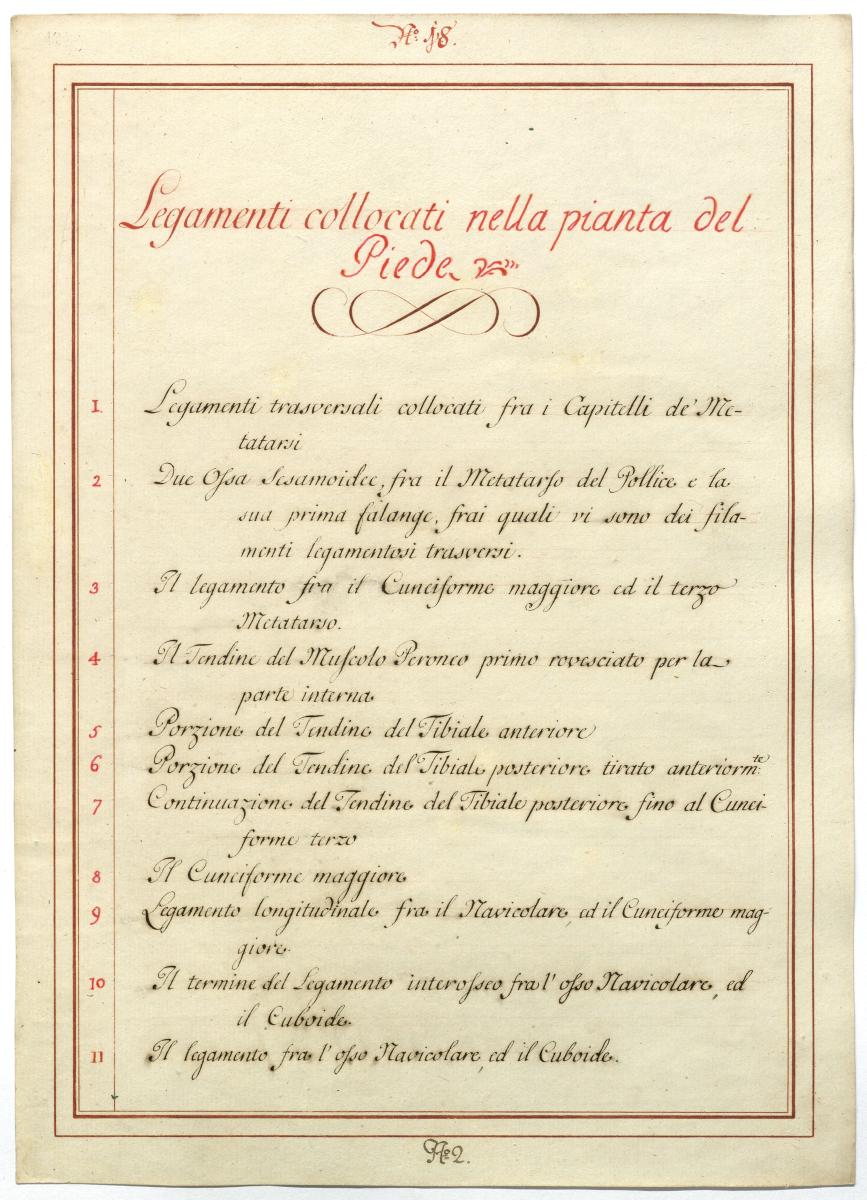 No. 18.
Legamenti collocati nella pianta del
Piede
1. Legamenti trasversali collocati fra i Capitelli de' Me-
tatarsi
2 Due Ossa Sesamoidee, fra il Metatarso del Pollice e la
sua prima falange, frai quali vi sono dei fila-
menti legamentosi trasversi.
3 Il legamento fra il Cuneiforme maggiore ed il terzo
Metatarso.
4 Il Tendine del Muscolo Peroneo primo rovesciato per la
parte interna
5 Porzione del Tendine del Tibiale anteriore
6 Porzione del Tendine del Tibiale posteriore tirato anteriorm:te
7 Continuazione del Tendine del Tibiale posteriore fino al Cunei-
forme terzo
8 Il Cuneiforme maggiore
9 Legamento longitudinale fra il Navicolare, ed il Cuneiforme mag-
giore.
10 Il termine del Legamento interosseo fra l' osso Navicolare, ed
il Cuboide.
11 Il legamento fra l' osso Navicolare, ed il Cuboide.
No. 2.